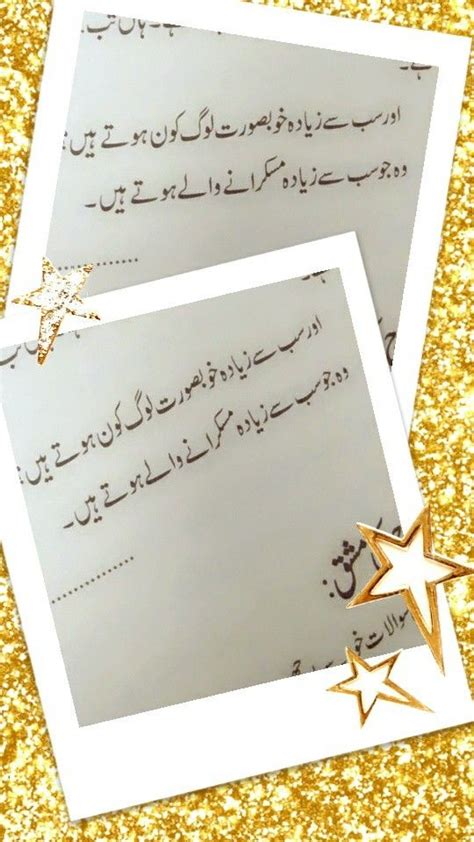 ہے۔ ہاں تب
ہے۔
اور سب سے زیادہ خوبصورت لوگ کون ہوتے ہیں:
وہ جو سب سے زیادہ مسکرانے والے ہوتے ہیں۔
...............
اور سب سے زیادہ خوبصورت لوگ کون ہوتے ہیں:
وہ جو سب سے زیادہ مسکرانے والے ہوتے ہیں۔
...............
مشق:
سوالات